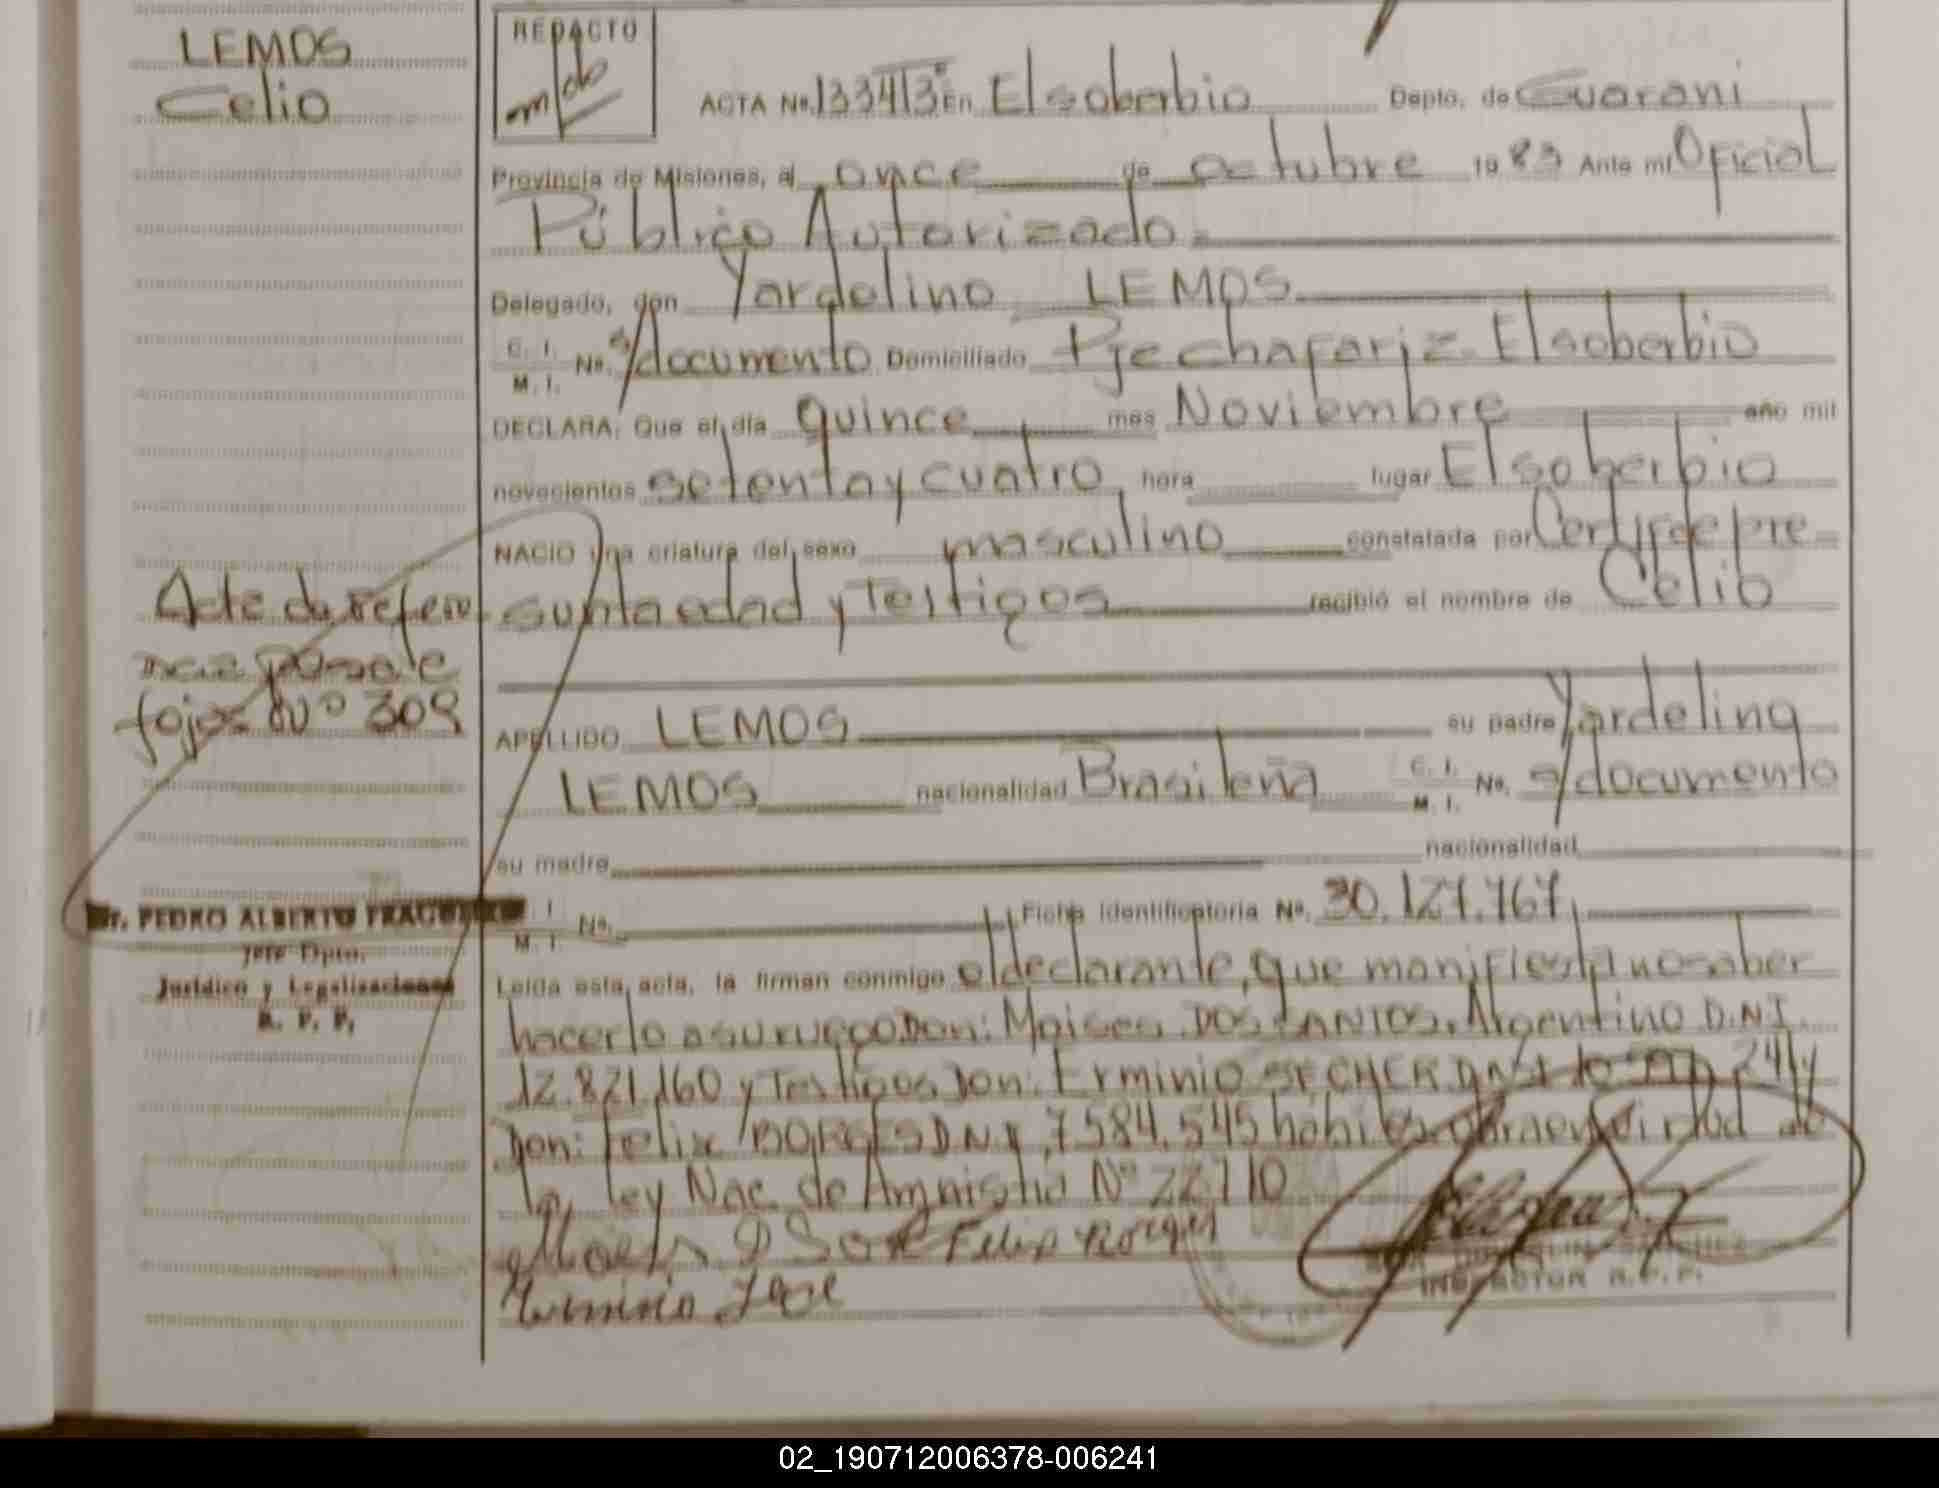 LEMOS
Celio
REDACTO
ACTA No. En El soberbio Depto. de Guarani
Provincia de Misiones, al once de octubre 1983 Ante mi Oficial
Público Autorizado
Delegado, don Yardelino LEMOS
C. I.
M. I. No. s/documento Domiciliado Pje chafariz El soberbio
DECLARA: Que el día quince mes Noviembre año mil
novecientos setenta y cuatro hora lugar El soberbio
NACIO una criatura del sexo masculino constatada por Certif de pre
sunta edad y Testigos recibió el nombre de Celio
APELLIDO LEMOS su padre Yardelino
LEMOS nacionalidad Brasileña C. I. M. I. No. s/documento
su madre nacionalidad
M. I. No. Ficha Identificatoria No. 30.127.767
Leída esta acta, la firman conmigo el declarante, que manifiesta no saber
hacerlo a su ruego Don: Moises DOS SANTOS, Argentino D.N.I.
12.821.160 y Testigos Don: Erminio 241 y
Don: Felix BORGES D.N.I. 7.584.545 habiles
la ley Nac. de Amnistia Nº 22.710
Felix Borges
INSPECTOR R.P.P.
Acta de referen
cia pasa de
fojas Nº 309
Dr. PEDRO ALBERTO
Jefe Dpto.
Jurídico y Legalizaciones
R. P. P.
02_190712006378-006241